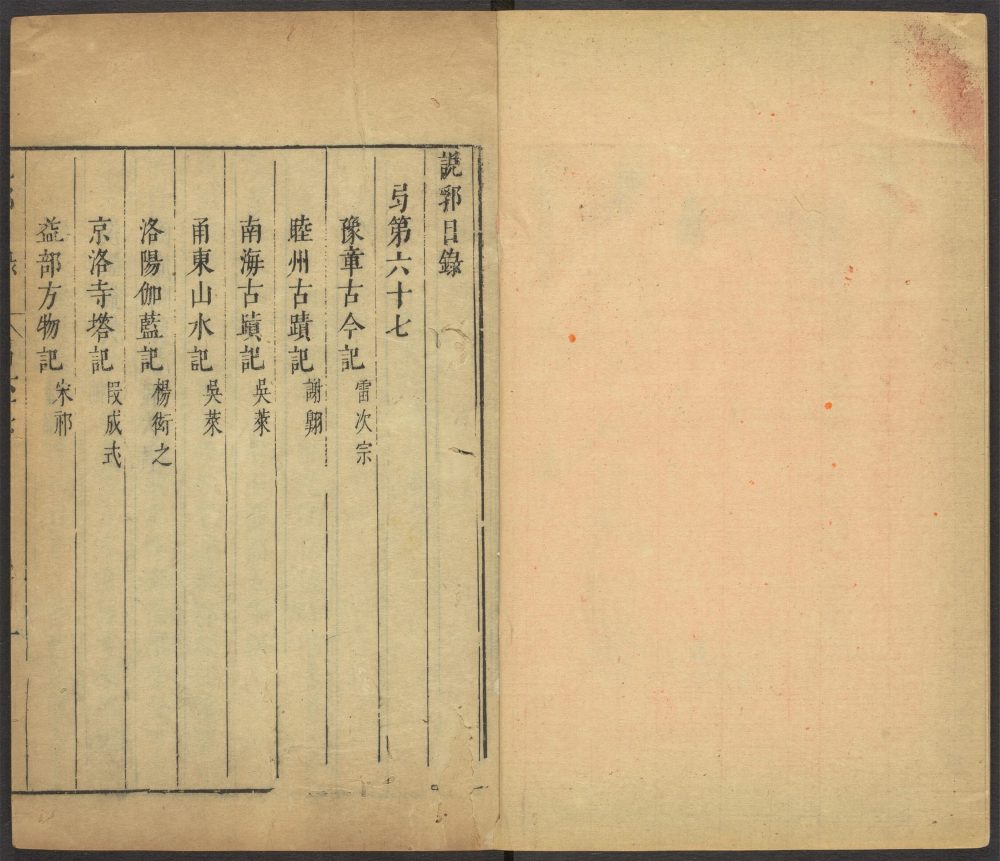 説郛目錄
弓第六十七
豫章古今記 雷次宗
睦州古蹟記 謝翺
南海古蹟記 吳萊
甬東山水記 吳萊
洛陽伽藍記 楊衒之
京洛寺塔記 段成式
益部方物記 宋祁